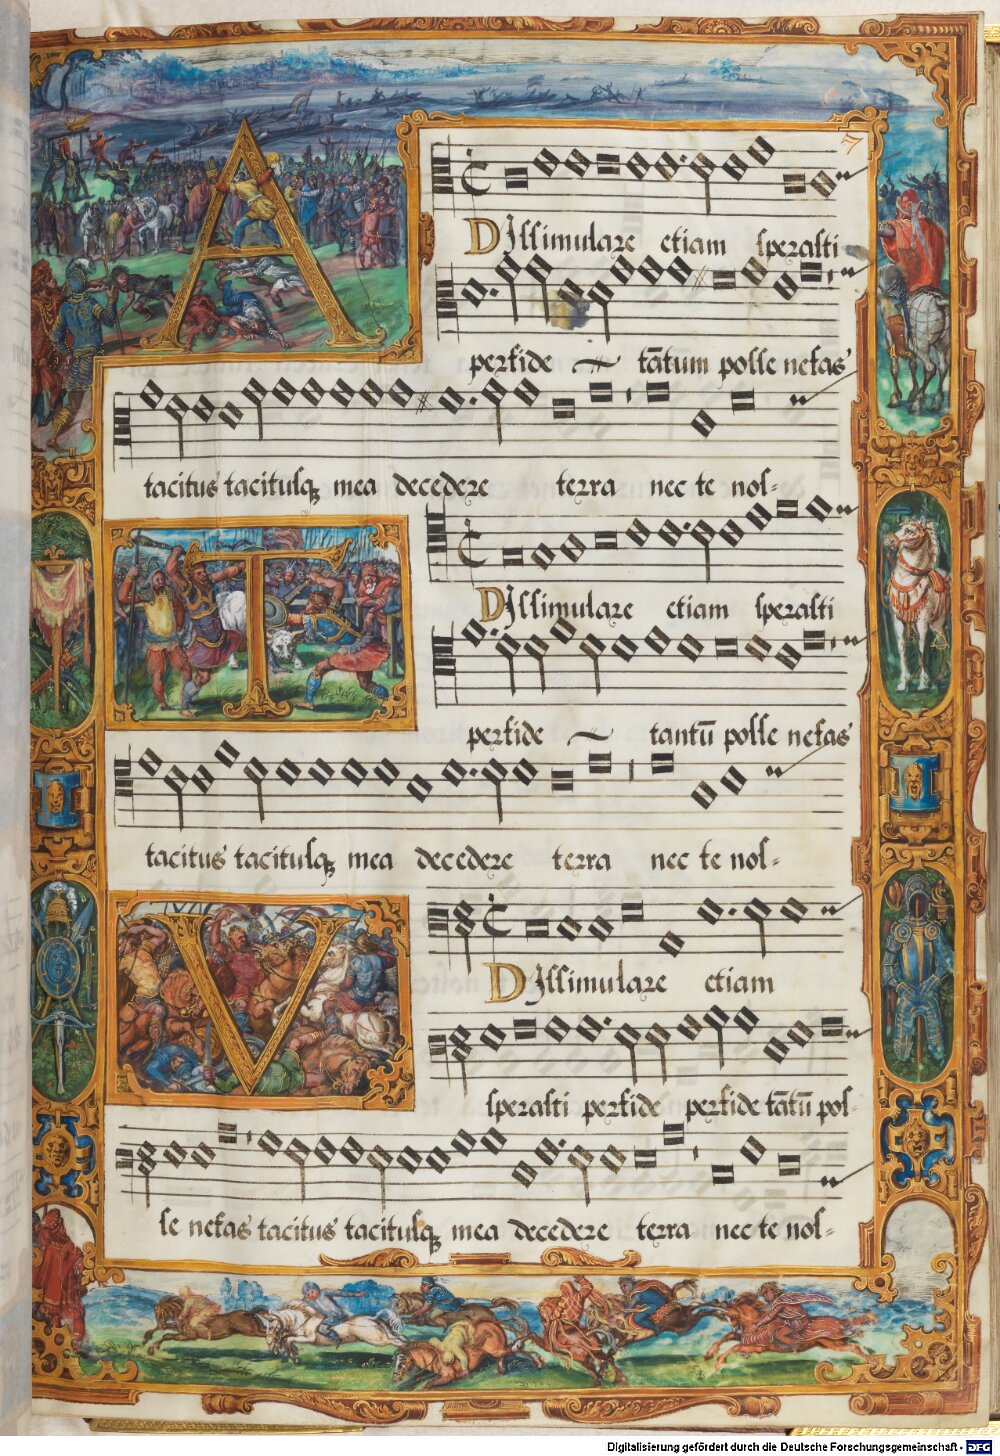 7
A
DJssimulare etiam sperasti
perfide tātum posse nefas
tacitus tacitusq; mea decedere terra nec te nos-
T
DJssimulare etiam sperasti
perfide tantū posse nefas
tacitus tacitusq; mea decedere terra nec te nos-
V
DJssimulare etiam
sperasti perfide perfide tātū pos-
se nefas tacitus tacitusq; mea decedere terra nec te nos-
Digitalisierung gefördert durch die Deutsche Forschungsgemeinschaft - DFG